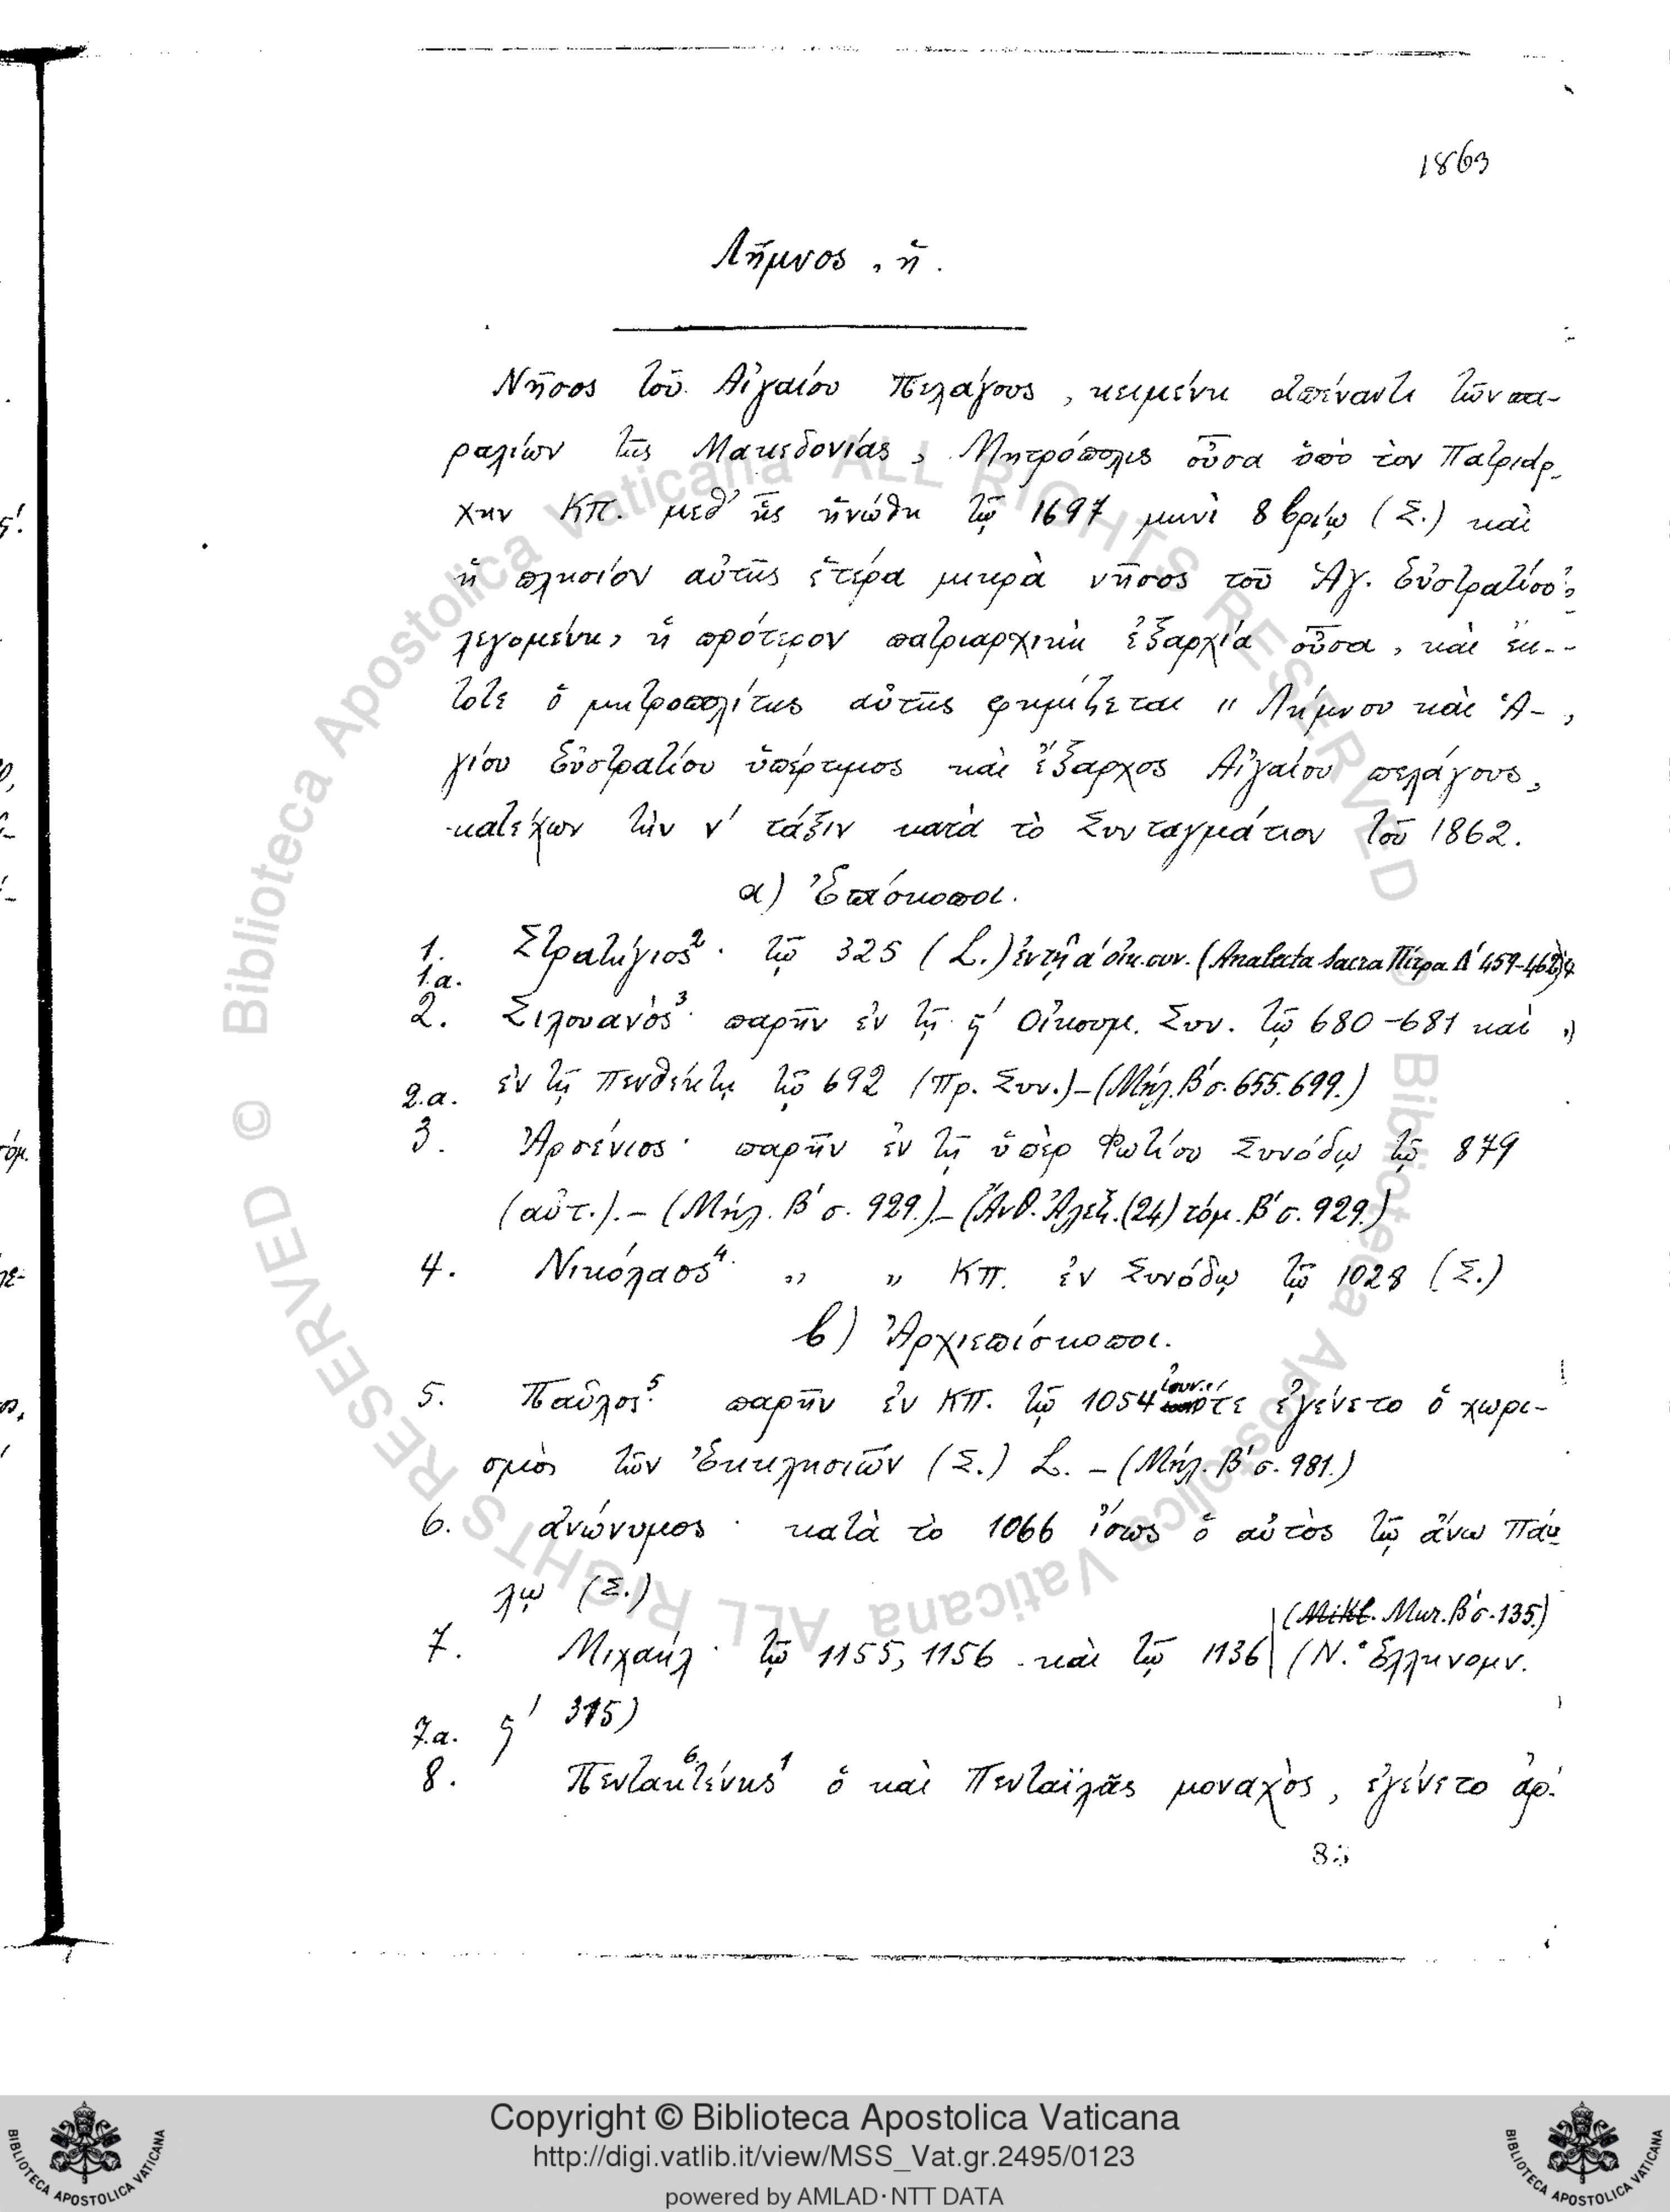 1863
Λῆμνος, ἡ.
Νῆσος τοῦ Αἰγαίου Πελάγους, κειμένη ἀπέναντι τῶν πα-
ραλίων τῆς Μακεδονίας, Μητρόπολις οὖσα ὑπὸ τὸν Πατριάρ-
χην ΚΠ. μεθ' ἧς ἡνώθη τῷ 1697 μηνὶ 8βρίῳ (Σ.) καὶ
ἡ πλησίον αὐτῆς ἑτέρα μικρὰ νῆσος τοῦ Ἁγ. Εὐστρατίου
λεγομένη, ἡ πρότερον πατριαρχικὴ ἐξαρχία οὖσα, καὶ ἔκ-
τοτε ὁ μητροπολίτης αὐτῆς φημίζεται " Λήμνου καὶ Ἁ-
γίου Εὐστρατίου ὑπέρτιμος καὶ ἔξαρχος Αἰγαίου πελάγους,
κατέχων τὴν ν' τάξιν κατὰ τὸ Συνταγμάτιον τοῦ 1862.
α) Ἐπίσκοποι.
1. Στρατήγιος² · τῷ 325 (L.) ἐν τῇ α' οἰκ. συν. (Analecta Sacra Πίτρα Δ' 459-462)
1.α.
2. Σιλουανὸς³ · παρῆν ἐν τῇ ϛ' Οἰκουμ. Συν. τῷ 680-681 καὶ
ἐν τῇ Πενθέκτῃ τῷ 692 (Πρ. Συν.) - (Μήλ. Β' σ. 655. 699.)
2.α.
3. Ἀρσένιος · παρῆν ἐν τῇ ὑπὲρ Φωτίου Συνόδῳ τῷ 879
(αὐτ.). - (Μήλ. Β' σ. 929.) - (Ἄνθ. Ἀλεξ. (24) τόμ. Β' σ. 929.)
4. Νικόλαος⁴ · " " ΚΠ. ἐν Συνόδῳ τῷ 1028 (Σ.)
β) Ἀρχιεπίσκοποι.
5. Παῦλος⁵ · παρῆν ἐν ΚΠ. τῷ 1054 ὅτε ἐγένετο ὁ χωρι-
σμὸς τῶν Ἐκκλησιῶν (Σ.) L. - (Μήλ. Β' σ. 981.)
6. ἀνώνυμος · κατὰ τὸ 1066 ἴσως ὁ αὐτὸς τῷ ἄνω Πάυ
λῳ (Σ.)
(Mikl. Μικ. Β' σ. 135.)
7. Μιχαήλ · τῷ 1155, 1156 καὶ τῷ 1136 (Ν. Ἑλληνομν.
ϛ' 315)
7.α.
8. Πεντακτένης⁶ ¹ ὁ καὶ Πενταϊλᾶς μοναχὸς, ἐγένετο ἀρ-
Copyright © Biblioteca Apostolica Vaticana
http://digi.vatlib.it/view/MSS_Vat.gr.2495/0123
powered by AMLAD·NTT DATA
BIBLIOTECA APOSTOLICA VATICANA
BIBLIOTECA APOSTOLICA VATICANA
© Biblioteca Apostolica Vaticana ALL RIGHTS RESERVED
© Biblioteca Apostolica Vaticana ALL RIGHTS RESERVED